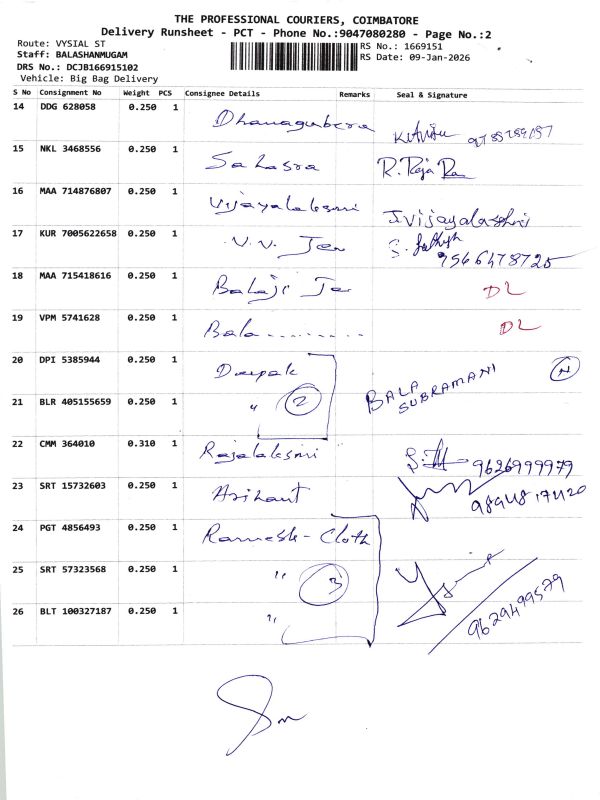 THE PROFESSIONAL COURIERS, COIMBATORE
Delivery Runsheet - PCT - Phone No.:9047080280 - Page No.:2
Route: VYSIAL ST
Staff: BALASHANMUGAM
DRS No.: DCJB166915102
Vehicle: Big Bag Delivery
RS No.: 1669151
RS Date: 09-Jan-2026
S No Consignment No Weight PCS Consignee Details Remarks Seal & Signature
14 DDG 628058 0.250 1 Dhanagubera
15 NKL 3468556 0.250 1 Sahasra R. Raja Ra
16 MAA 714876807 0.250 1 Vijayalaksmi J Vijayalakshmi
17 KUR 7005622658 0.250 1 V.V. Jew 9566478725
18 MAA 715418616 0.250 1 Balaji Jew DL
19 VPM 5741628 0.250 1 Bala.......... DL
20 DPI 5385944 0.250 1 Deepak BALA SUBRAMANI N
21 BLR 405155659 0.250 1 " 2
22 CMM 364010 0.310 1 Rajalaksmi 9626999979
23 SRT 15732603 0.250 1 Arihant
24 PGT 4856493 0.250 1 Ramesh - Cloth
25 SRT 57323568 0.250 1 " 3
26 BLT 100327187 0.250 1 " 9629499579